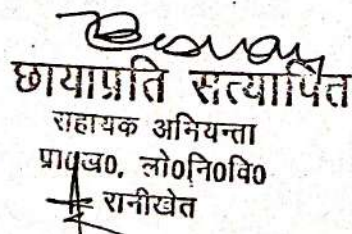 छायाप्रति सत्यापित
सहायक अभियन्ता
प्रा०ख०, लो०नि०वि०
रानीखेत